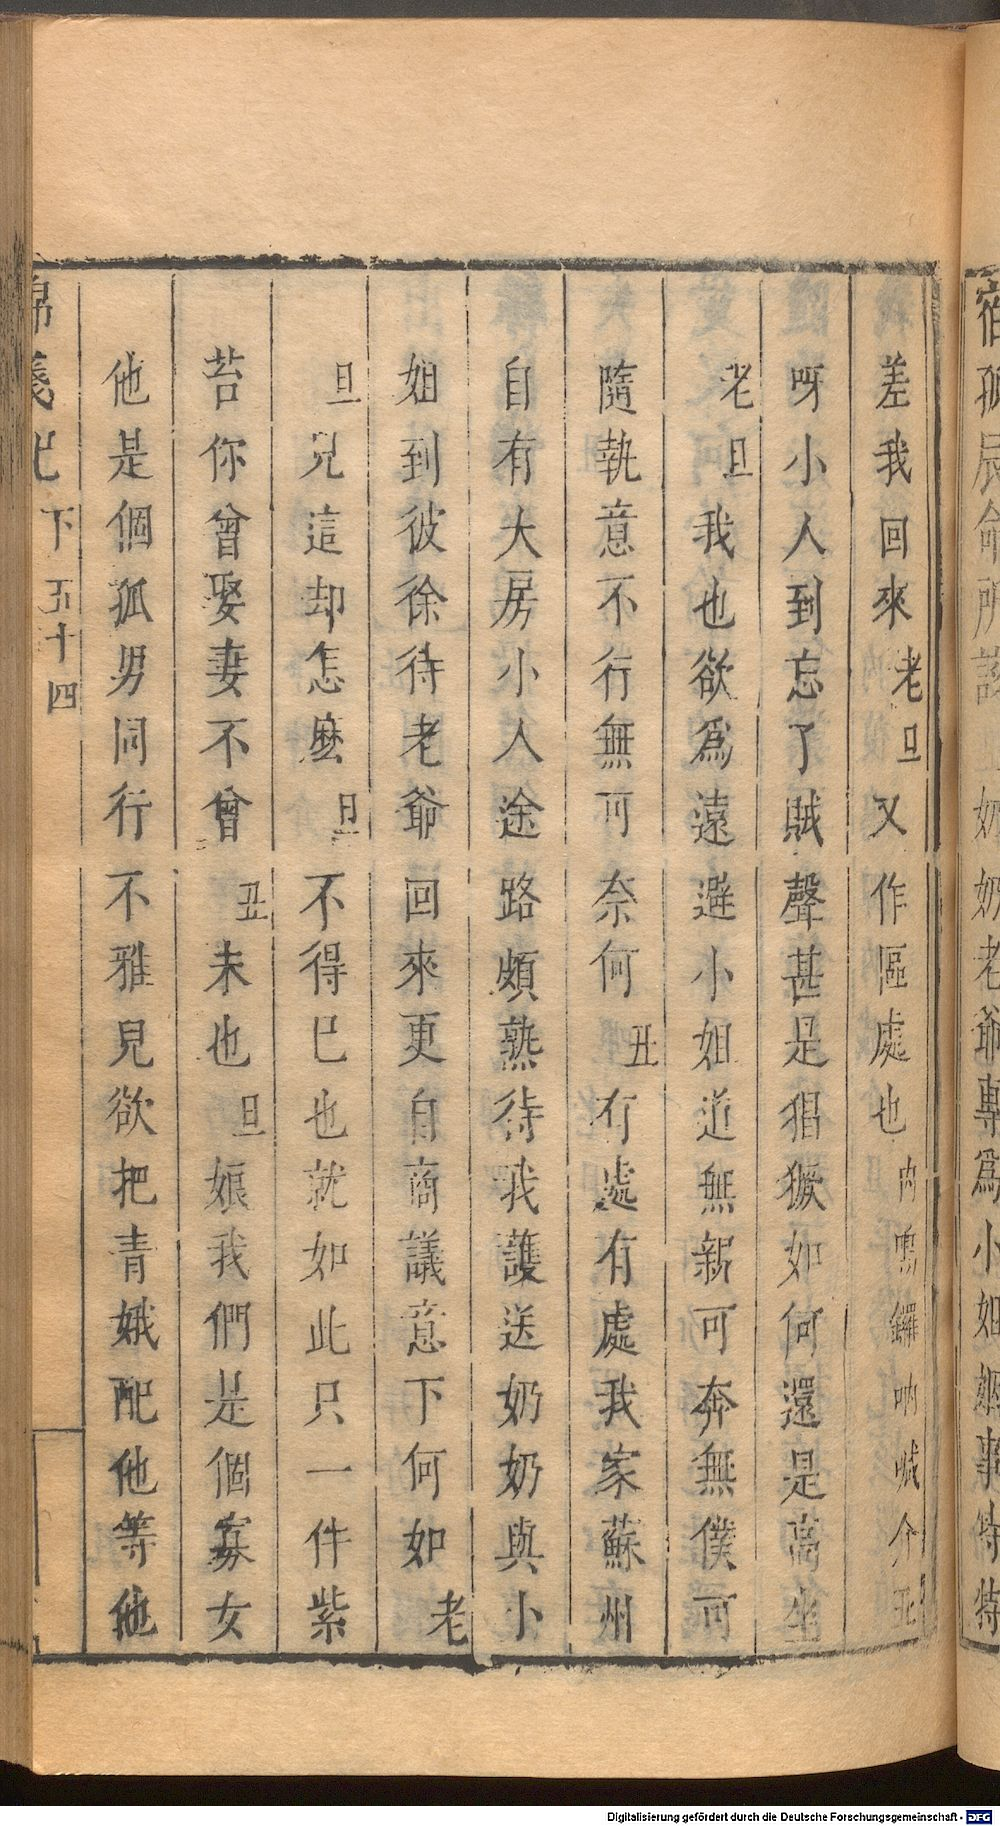 宿孤辰命所該
奶奶老爺專爲小姐姻事特特
差我回來老旦又作區處也內鳴鑼吶喊介丑
呀小人到忘了賊聲甚是猖獗如何還是高坐
老旦我也欲爲遠避小姐道無親可奔無僕可
隨執意不行無可奈何丑有處有處我家蘇州
自有大房小人途路頗熟待我護送奶奶與小
姐到彼徐待老爺回來更自商議意下何如老
旦兒這却怎麽旦不得已也就如此只一件紫
苔你曾娶妻不曾丑未也旦娘我們是個寡女
他是個孤男同行不雅兒欲把青娥配他等他
錦箋記 下 五十四
Digitalisierung gefördert durch die Deutsche Forschungsgemeinschaft - DFG